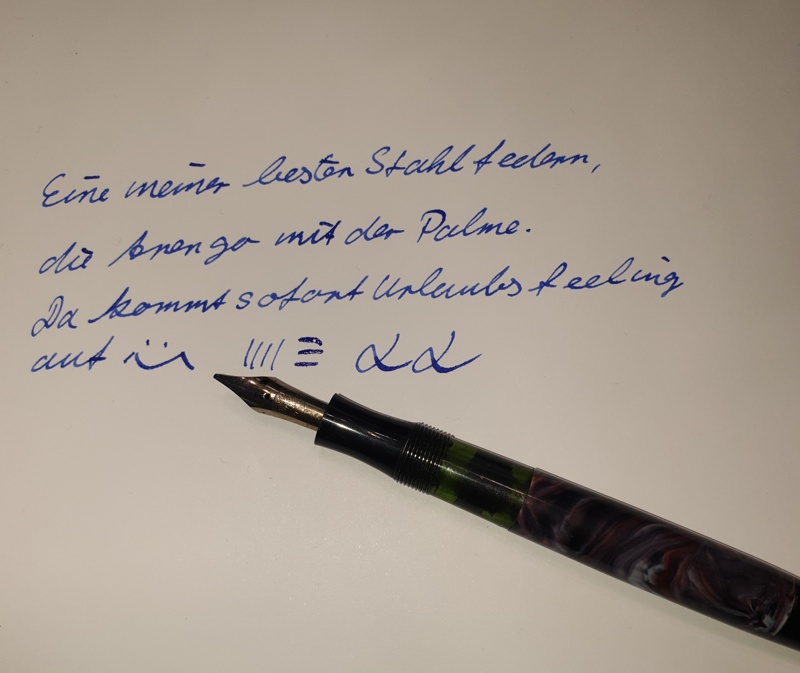 Eine meiner besten Stahlfedern,
die brenga mit der Palme.
Da kommt sofort Urlaubsfeeling
auf